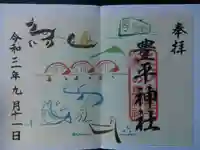 奉拝
豊平神社
令和二年九月十一日